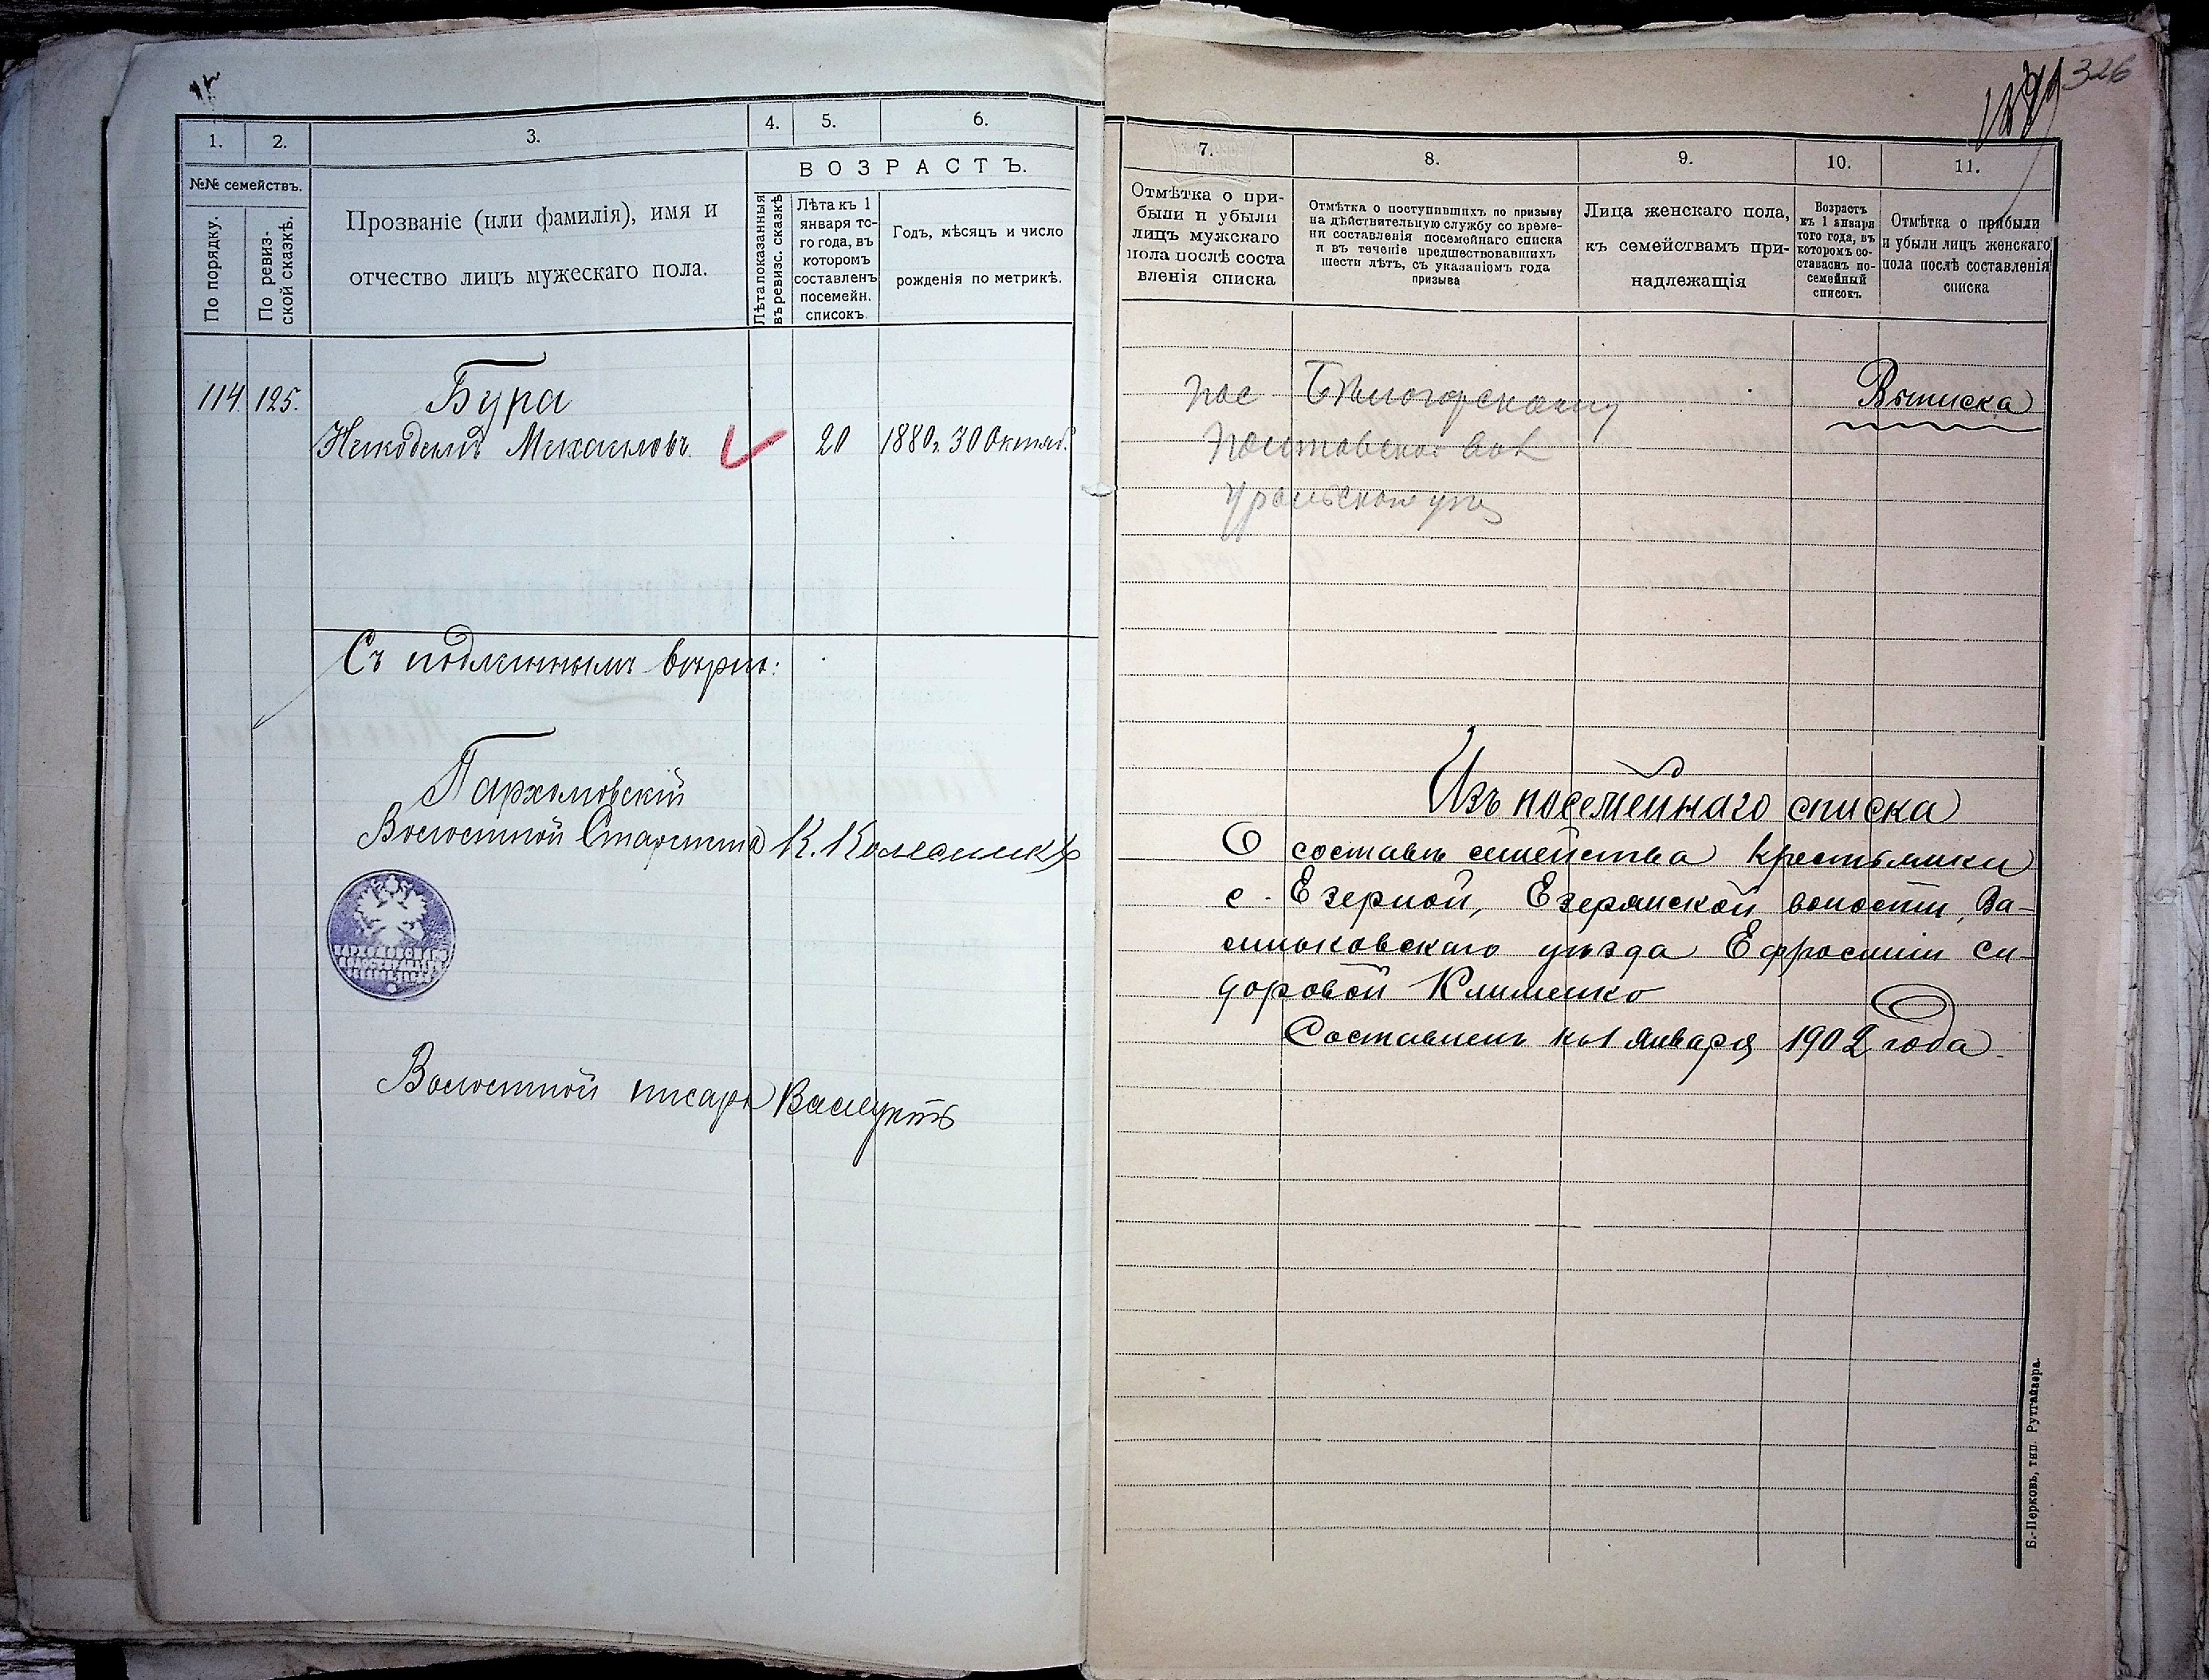 1.
2.
3.
4.
5.
6.
№№ семействъ.
По порядку.
По ревиз-
ской сказкѣ.
Прозваніе (или фамилія), имя и
отчество лицъ мужескаго пола.
ВОЗРАСТЪ.
Лѣта показанныя
въ ревизс. сказкѣ
Лѣта къ 1
января то-
го года, въ
которомъ
составленъ
посемейн.
списокъ.
Годъ, мѣсяцъ и число
рожденія по метрикѣ.
114. 125. Бура
Никодимъ Михаиловъ. 20 1880 г. 30 Октяб.
Съ подлиннымъ вѣрно:
Пархомовскій
Волостной Старшина К. Колесникъ
ПАРХОМОВСКАГО
Волостной писарь
326
7.
8.
9.
10.
11.
Отмѣтка о при-
были и убыли
лицъ мужскаго
пола послѣ соста
вленія списка
Отмѣтка о поступившихъ по призыву
на дѣйствительную службу со време-
ни составленія посемейнаго списка
и въ теченіе предшествовавшихъ
шести лѣтъ, съ указаніемъ года
призыва
Лица женскаго пола,
къ семействамъ при-
надлежащія
Возрастъ
къ 1 января
того года, въ
которомъ со-
ставленъ по-
семейный
списокъ.
Отмѣтка о прибыли
и убыли лицъ женскаго
пола послѣ составленія
списка
пос Бѣлогорскому
вол
Уральскои
Выписка
Изъ посемейнаго списка
О составѣ семейства крестьянки
с. Езерной, Езерянской волости, Ва-
сильковскаго уѣзда Ефросиніи Си-
доровой Клименко
Составленъ къ 1 Января 1902 года.
Б.-Церковь, тип. Руттайзера.